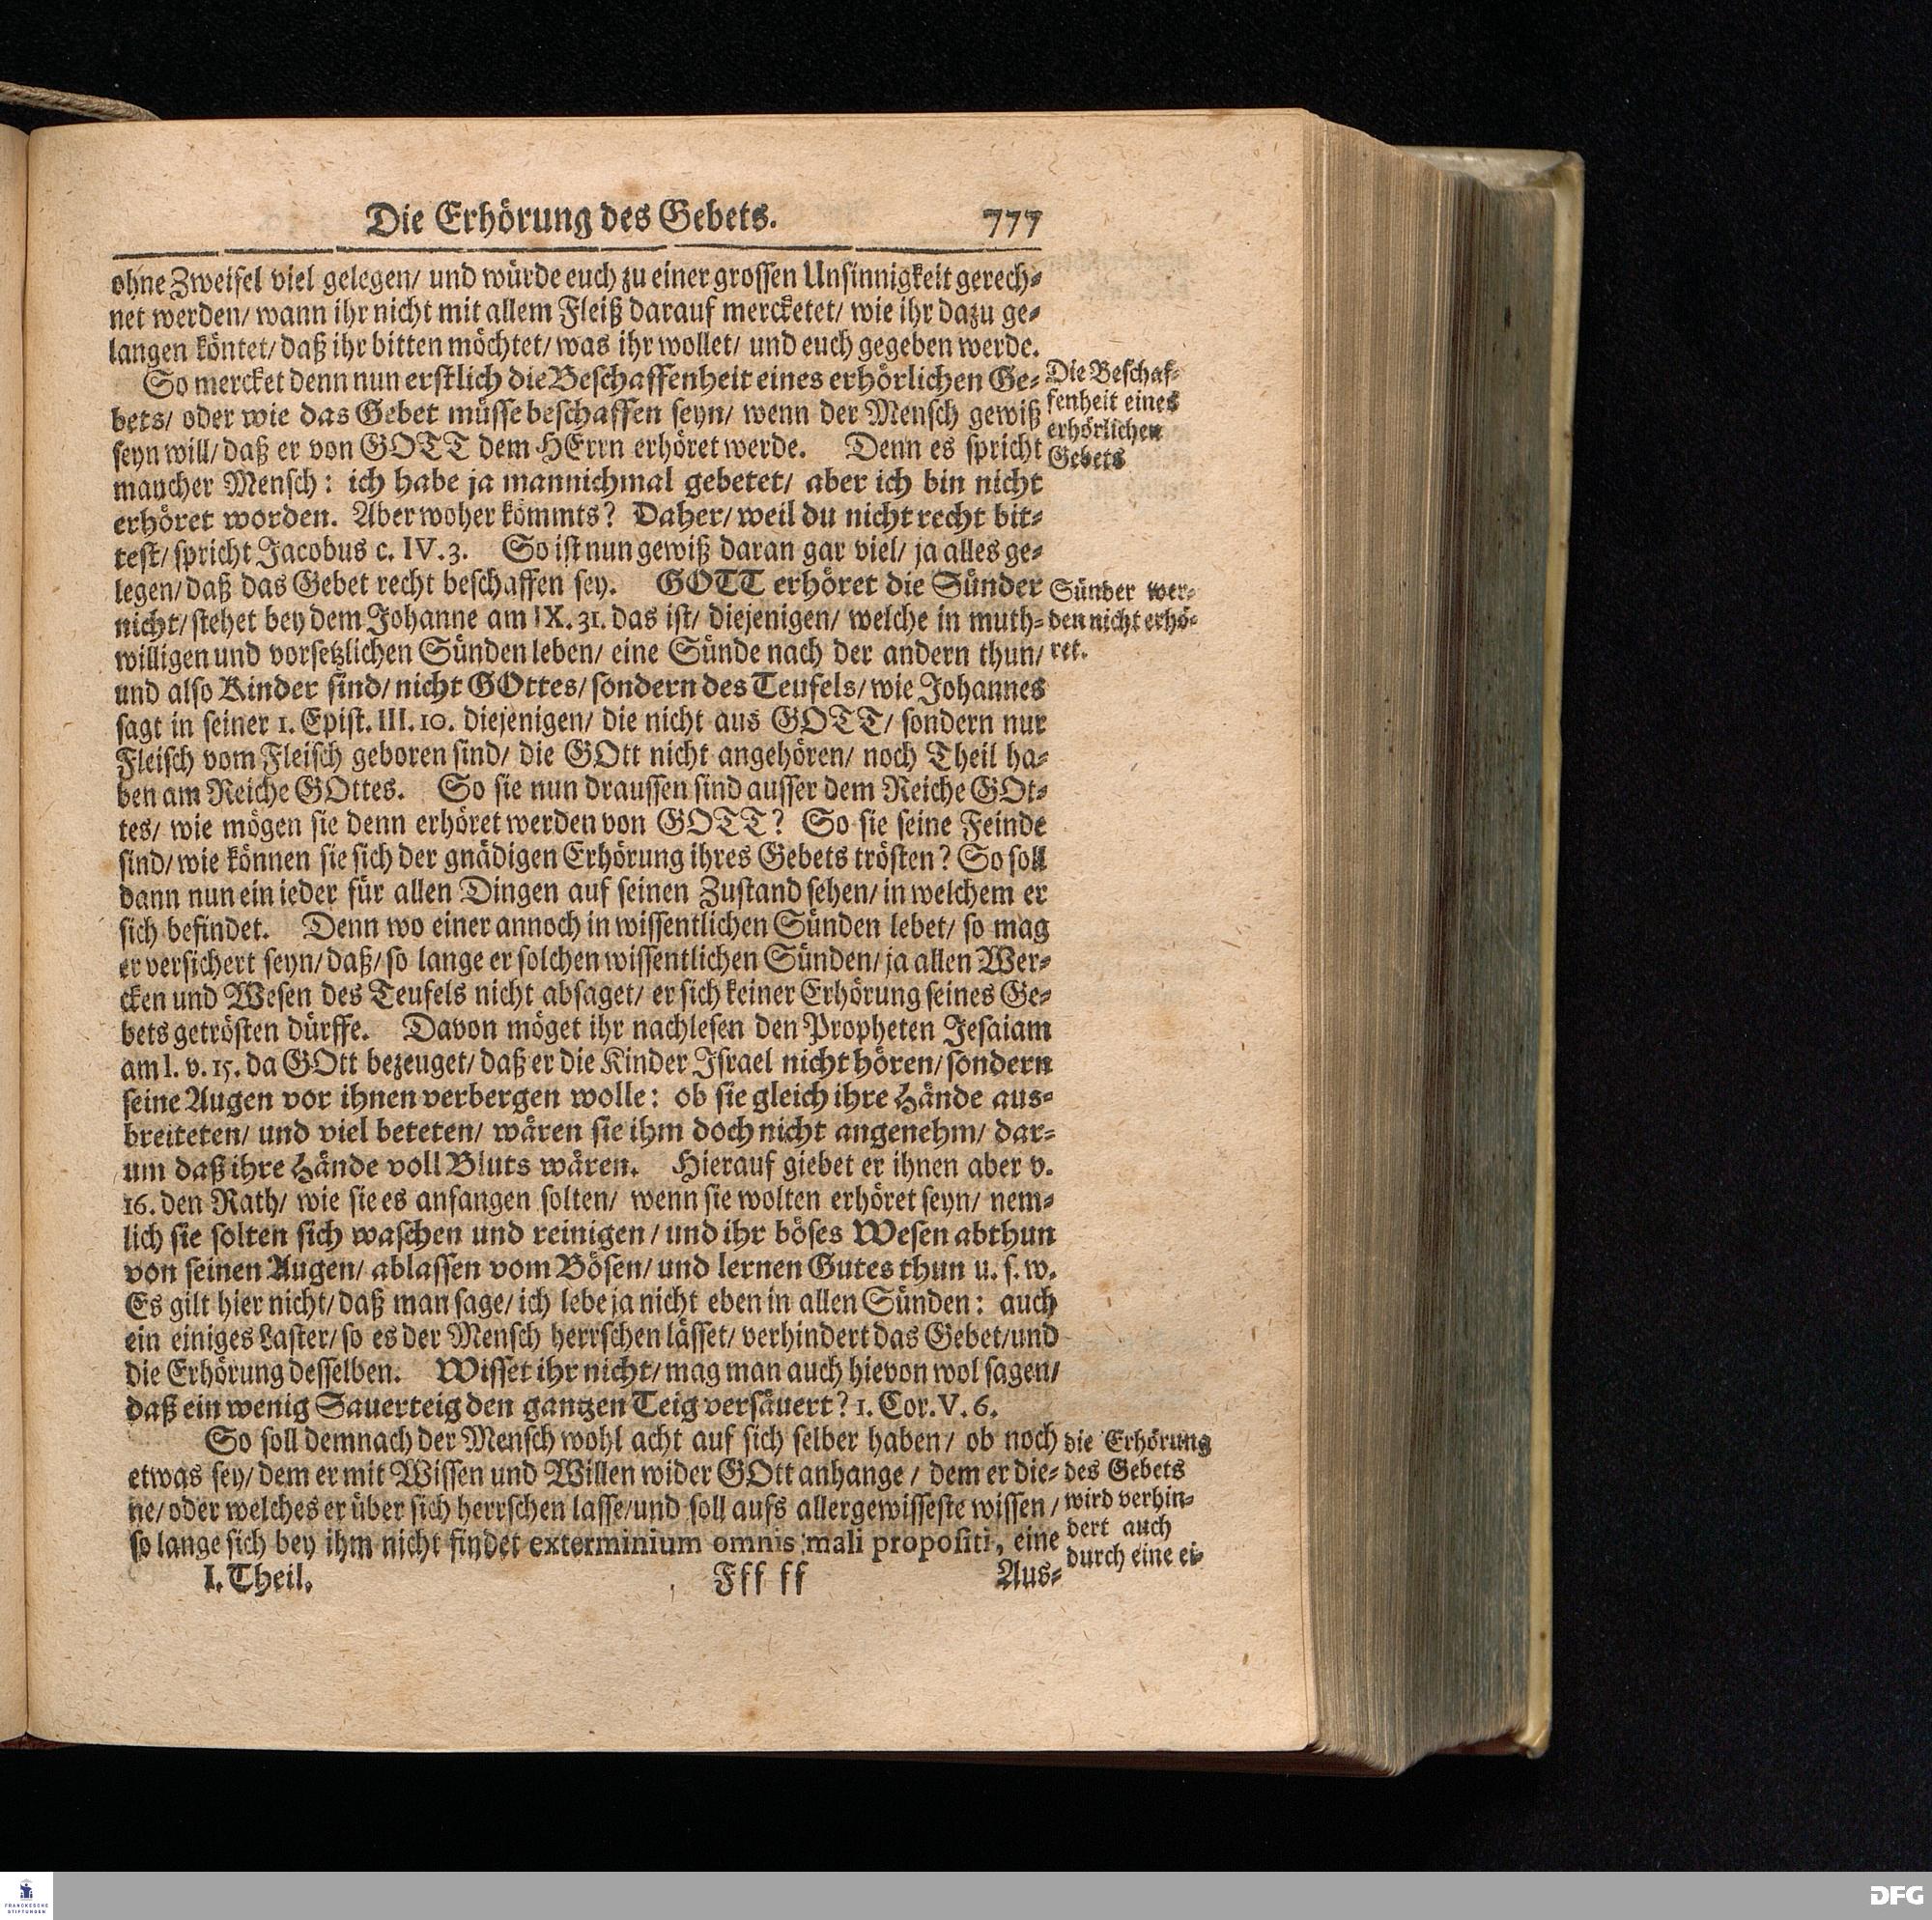 Die Erhörung des Gebets. 777
ohne Zweifel viel gelegen/ und würde euch zu einer grossen Unsinnigkeit gerech-
net werden/ wann ihr nicht mit allem Fleiß darauf mercketet/ wie ihr dazu ge-
langen köntet/ daß ihr bitten möchtet/ was ihr wollet/ und euch gegeben werde.
So mercket denn nun erstlich die Beschaffenheit eines erhörlichen Ge-
bets/ oder wie das Gebet müsse beschaffen seyn/ wenn der Mensch gewiß
seyn will/ daß er von GOTT dem HErrn erhöret werde. Denn es spricht
maucher Mensch: ich habe ja mannichmal gebetet/ aber ich bin nicht
erhöret worden. Aber woher kömmts? Daher/ weil du nicht recht bit-
test/ spricht Jacobus c. IV. 3. So ist nun gewiß daran gar viel/ ja alles ge-
legen/ daß das Gebet recht beschaffen sey. GOTT erhöret die Sünder
nicht/ stehet bey dem Johanne am IX. 31. das ist/ diejenigen/ welche in muth-
willigen und vorsetzlichen Sünden leben/ eine Sünde nach der andern thun/
und also Kinder sind/ nicht GOttes/ sondern des Teufels/ wie Johannes
sagt in seiner 1. Epist. III. 10. diejenigen/ die nicht aus GOTT/ sondern nur
Fleisch vom Fleisch geboren sind/ die GOtt nicht angehören/ noch Theil ha-
ben am Reiche GOttes. So sie nun draussen sind ausser dem Reiche GOt-
tes/ wie mögen sie denn erhöret werden von GOTT? So sie seine Feinde
sind/ wie können sie sich der gnädigen Erhörung ihres Gebets trösten? So soll
dann nun ein ieder für allen Dingen auf seinen Zustand sehen/ in welchem er
sich befindet. Denn wo einer annoch in wissentlichen Sünden lebet/ so mag
er versichert seyn/ daß/ so lange er solchen wissentlichen Sünden/ ja allen Wer-
cken und Wesen des Teufels nicht absaget/ er sich keiner Erhörung seines Ge-
bets getrösten dürffe. Davon möget ihr nachlesen den Propheten Jesaiam
am I. v. 15. da GOtt bezeuget/ daß er die Kinder Israel nicht hören/ sondern
seine Augen vor ihnen verbergen wolle: ob sie gleich ihre Hände aus-
breiteten/ und viel beteten/ wären sie ihm doch nicht angenehm/ dar-
um daß ihre Hände voll Bluts wären. Hierauf giebet er ihnen aber v.
16. den Rath/ wie sie es anfangen solten/ wenn sie wolten erhöret seyn/ nem-
lich sie solten sich waschen und reinigen/ und ihr böses Wesen abthun
von seinen Augen/ ablassen vom Bösen/ und lernen Gutes thun u. s. w.
Es gilt hier nicht/ daß man sage/ ich lebe ja nicht eben in allen Sünden: auch
ein einiges Laster/ so es der Mensch herrschen lässet/ verhindert das Gebet/ und
die Erhörung desselben. Wisset ihr nicht/ mag man auch hievon wol sagen/
daß ein wenig Sauerteig den gantzen Teig versäuert? 1. Cor. V. 6.
So soll demnach der Mensch wohl acht auf sich selber haben/ ob noch
etwas sey/ dem er mit Wissen und Willen wider GOtt anhange/ dem er die-
ne/ oder welches er über sich herrschen lasse/ und soll aufs allergewisseste wissen/
so lange sich bey ihm nicht findet exterminium omnis mali propositi, eine
I. Theil. Fff ff Aus-
Die Beschaf-
fenheit eines
erhörlichen
Gebets
Sünder wer-
den nicht erhö-
ret.
die Erhörung
des Gebets
wird verhin-
dert auch
durch eine ei-
FRANCKESCHE
STIFTUNGEN
DFG